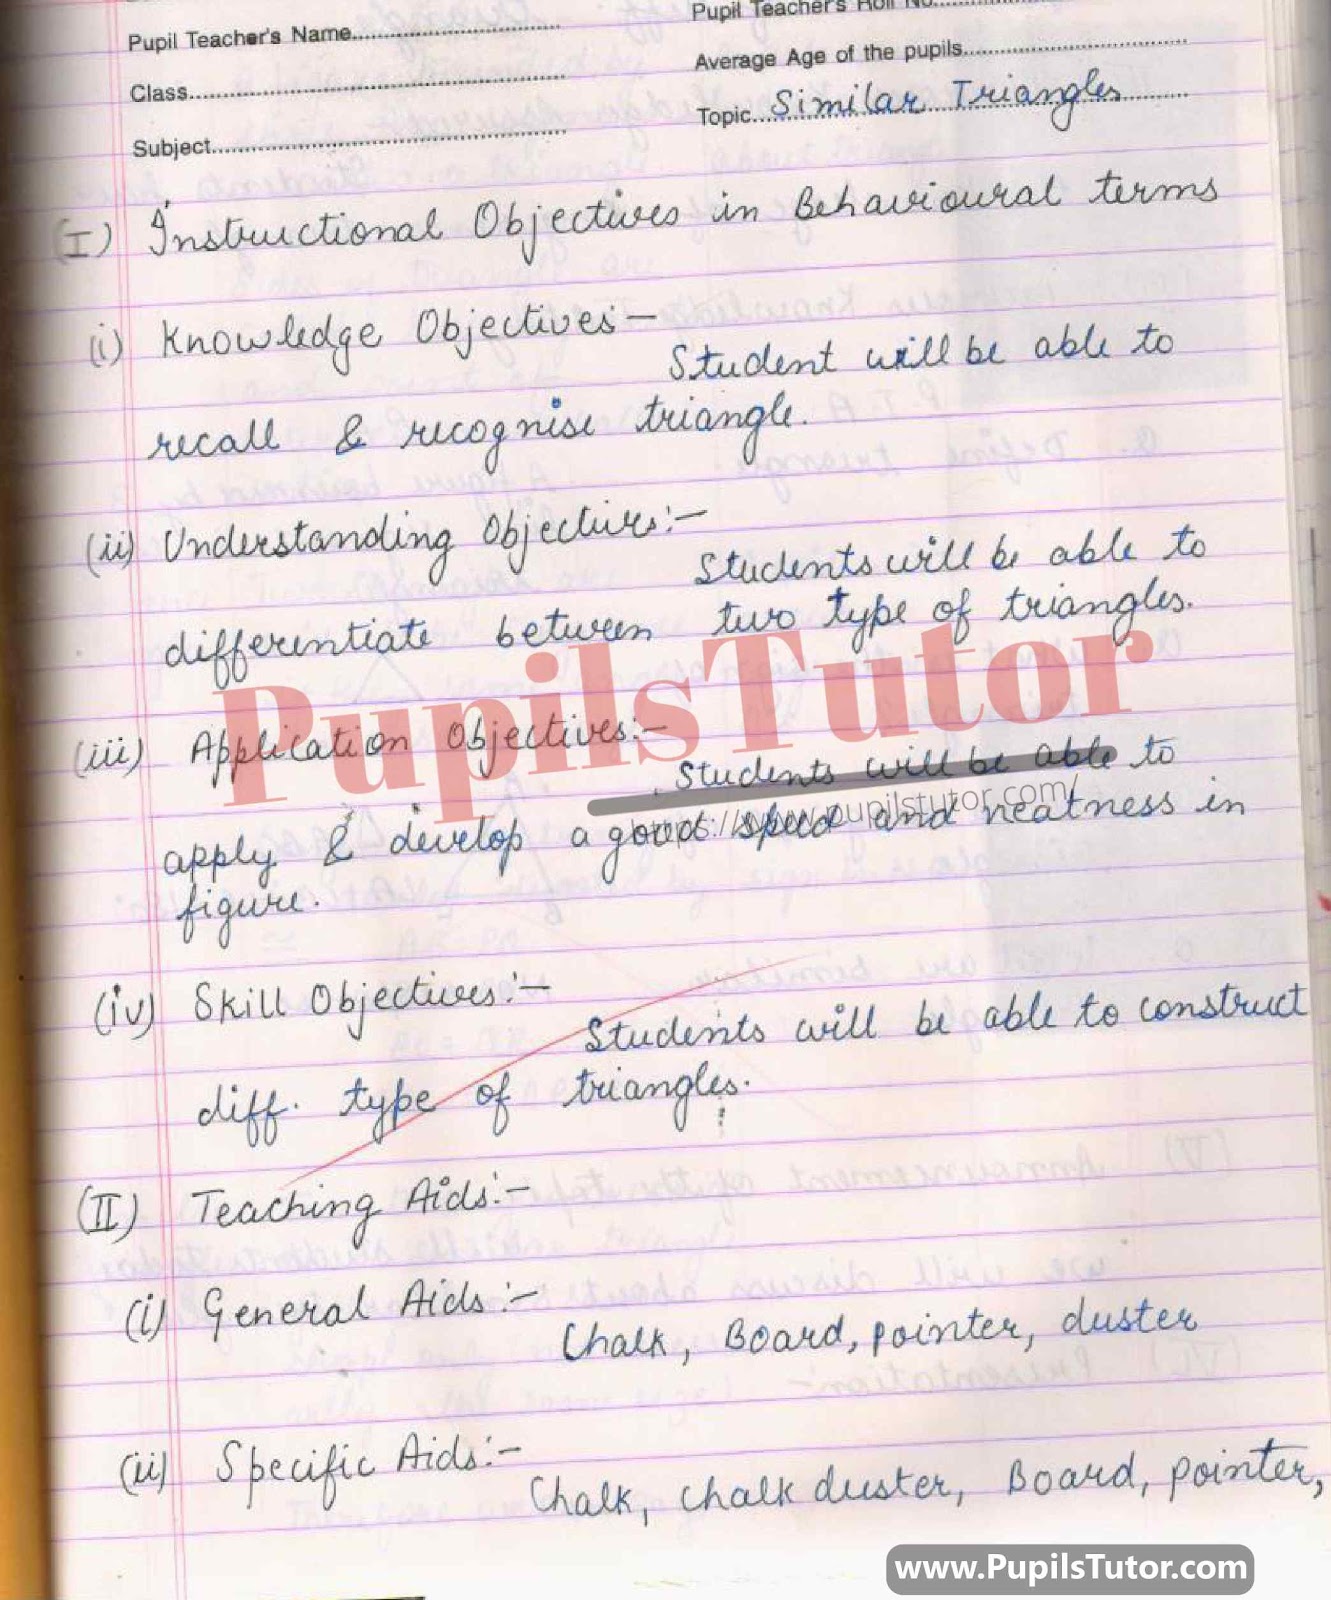 Pupil Teacher's Name............ Pupil Teacher's Roll No............
Class............ Average Age of the pupils............
Subject............ Topic....Similar Triangles
(I) Instructional Objectives in Behavioural terms
(i) Knowledge Objectives:-
Student will be able to
recall & recognise triangle.
(ii) Understanding Objectives:-
Students will be able to
differentiate between two type of triangles.
PupilsTutor
(iii) Application Objectives:-
Students will be able to
https://www.pupilstutor.com/
apply & develop a good speed and neatness in
figure.
(iv) Skill Objectives:-
Students will be able to construct
diff. type of triangles.
(II) Teaching Aids:-
(i) General Aids:-
Chalk, Board, pointer, duster
(ii) Specific Aids:-
Chalk, chalk duster, Board, pointer,
www.PupilsTutor.com